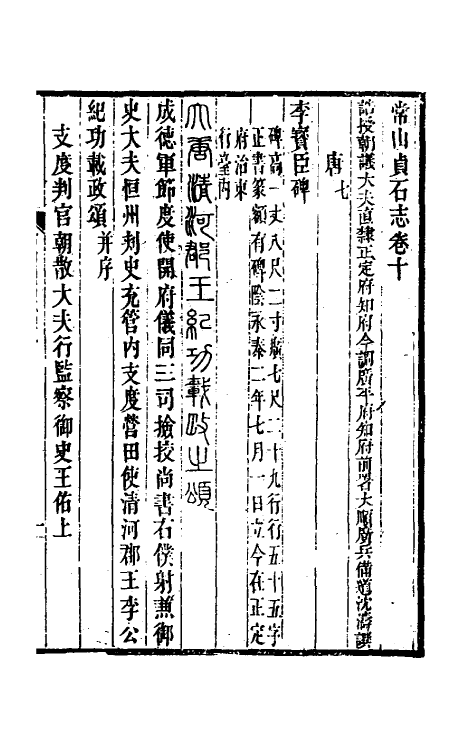 常山貞石志卷十
誥授朝議大夫直隸正定府知府今調廣平府知府前署大順廣兵備道沈濤譔
唐七
李寶臣碑
碑高一丈八尺二寸廣七尺二十九行行五十五字
正書篆額有碑陰永泰二年七月一日立今在正定
府治東
行臺內
大唐清河郡王紀功載政之頌
成德軍節度使開府儀同三司撿挍尚書右僕射兼御
史大夫恒州刺史充管內支度營田使清河郡王李公
紀功載政頌并序
支度判官朝散大夫行監察御史王佑上